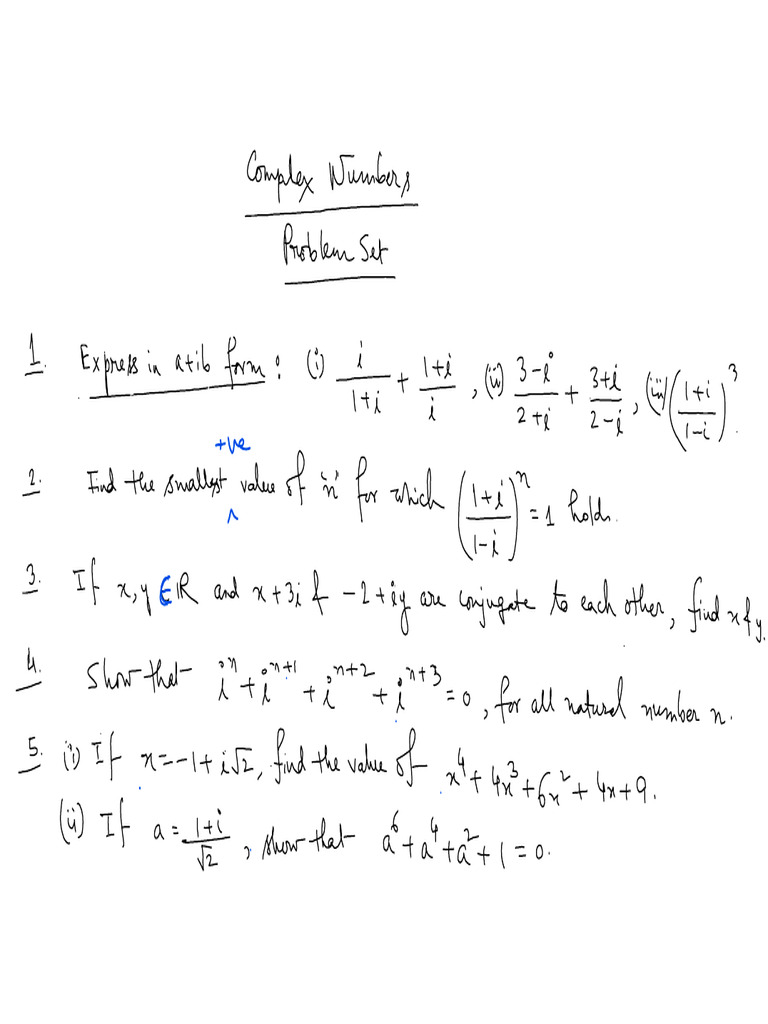 Complex Numbers
Problem Set
1. Express in a+ib form: (i) i/(1+i) + (1+i)/i, (ii) (3-i)/(2+i) + (3+i)/(2-i), (iii) ((1+i)/(1-i))^3.
2. Find the smallest +ve value of 'n' for which ((1+i)/(1-i))^n = 1 holds.
3. If x, y ∈ R and x+3i & -2+iy are conjugate to each other, find x & y.
4. Show that i^n + i^(n+1) + i^(n+2) + i^(n+3) = 0, for all natural number n.
5. (i) If x = -1+i√2, find the value of x^4 + 4x^3 + 6x^2 + 4x + 9.
(ii) If a = (1+i)/√2, show that a^6 + a^4 + a^2 + 1 = 0.